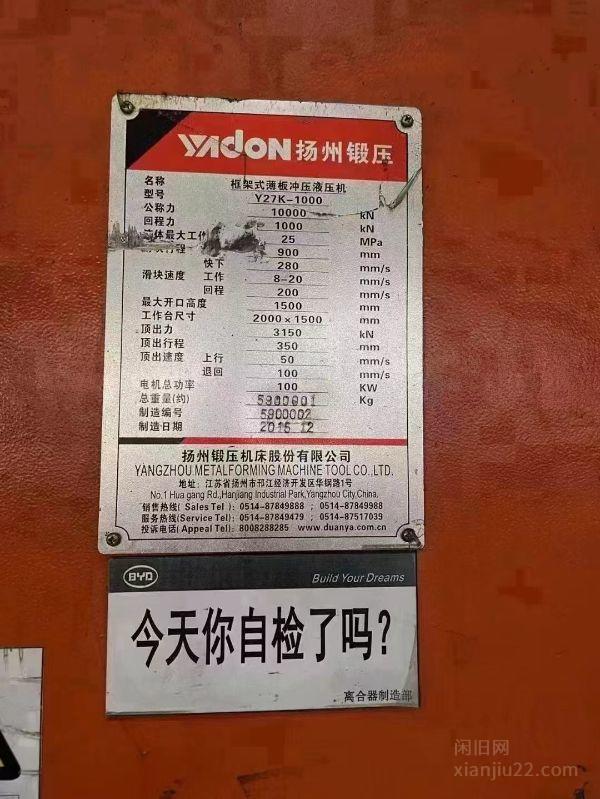 YADON 扬州锻压
名称 框架式薄板冲压液压机
型号 Y27K-1000
公称力 10000 kN
回程力 1000 kN
体最大工 25 MPa
行程 900 mm
快下 280 mm/s
滑块速度 工作 8-20 mm/s
回程 200 mm/s
最大开口高度 1500 mm
工作台尺寸 2000×1500 mm
顶出力 3150 kN
顶出行程 350 mm
顶出速度 上行 50 mm/s
退回 100 mm/s
电机总功率 100 KW
总重量(约) Kg
制造编号 5900002
制造日期 2015 12
扬州锻压机床股份有限公司
YANGZHOU METALFORMING MACHINE TOOL CO.,LTD.
地址: 江苏省扬州市邗江经济开发区华钢路1号
No.1 Hua gang Rd.,Hanjiang Industrial Park,Yangzhou City,China.
销售热线( Sales Tel ): 0514-87849888 0514-87849988
服务热线(Service Tel): 0514-87849479 0514-87517039
投诉电话( Appeal Tel): 8008288285 www.duanya.com.cn
BYD Build Your Dreams
今天你自检了吗?
离合器制造部
闲旧网
xianjiu22.com